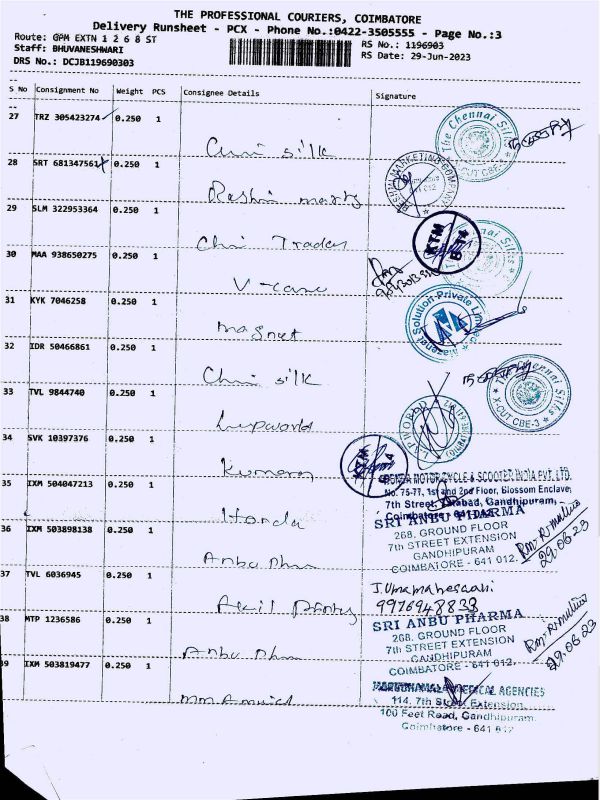 THE PROFESSIONAL COURIERS, COIMBATORE
Delivery Runsheet - PCX - Phone No.:0422-3505555 - Page No.:3
Route: GPM EXTN 1 2 6 8 ST
RS No.: 1196903
Staff: BHUVANESHWARI
RS Date: 29-Jun-2023
DRS No.: DCJB119690303
S No Consignment No Weight PCS Consignee Details Signature
27 TRZ 305423274 0.250 1
silk
The Chennai Silks
X-CUT CBE-
28 SRT 681347561 0.250 1
29 SLM 322953364 0.250 1
Traders
KTM
The Chennai Silks
30 MAA 938650275 0.250 1
V-care
31 KYK 7046258 0.250 1
magnet
Solution Private
32 IDR 50466861 0.250 1
silk
The Chennai Silks
X-CUT CBE-3
33 TVL 9844740 0.250 1
Lapworld
LAPWORLD
34 SVK 10397376 0.250 1
Kumaran
KTM
35 IXM 504047213 0.250 1
Honda
MOTORCYCLE & SCOOTER INDIA PVT. LTD.
No. 75-77, 1st and 2nd Floor, Blossom Enclave,
7th Street, Gandhipuram,
Coimbatore - 641
36 IXM 503898138 0.250 1
Anbu
SRI ANBU PHARMA
268, GROUND FLOOR
7th STREET EXTENSION
GANDHIPURAM
COIMBATORE - 641 012.
29.06.23
37 TVL 6036945 0.250 1
J. Umamaheswari
9976948833
38 MTP 1236586 0.250 1
Anbu
SRI ANBU PHARMA
268, GROUND FLOOR
7th STREET EXTENSION
GANDHIPURAM
COIMBATORE - 641 012.
29.06.23
39 IXM 503819477 0.250 1
MEDICAL AGENCIES
114, 7th Street Extension,
100 Feet Road, Gandhipuram
Coimbatore - 641 012